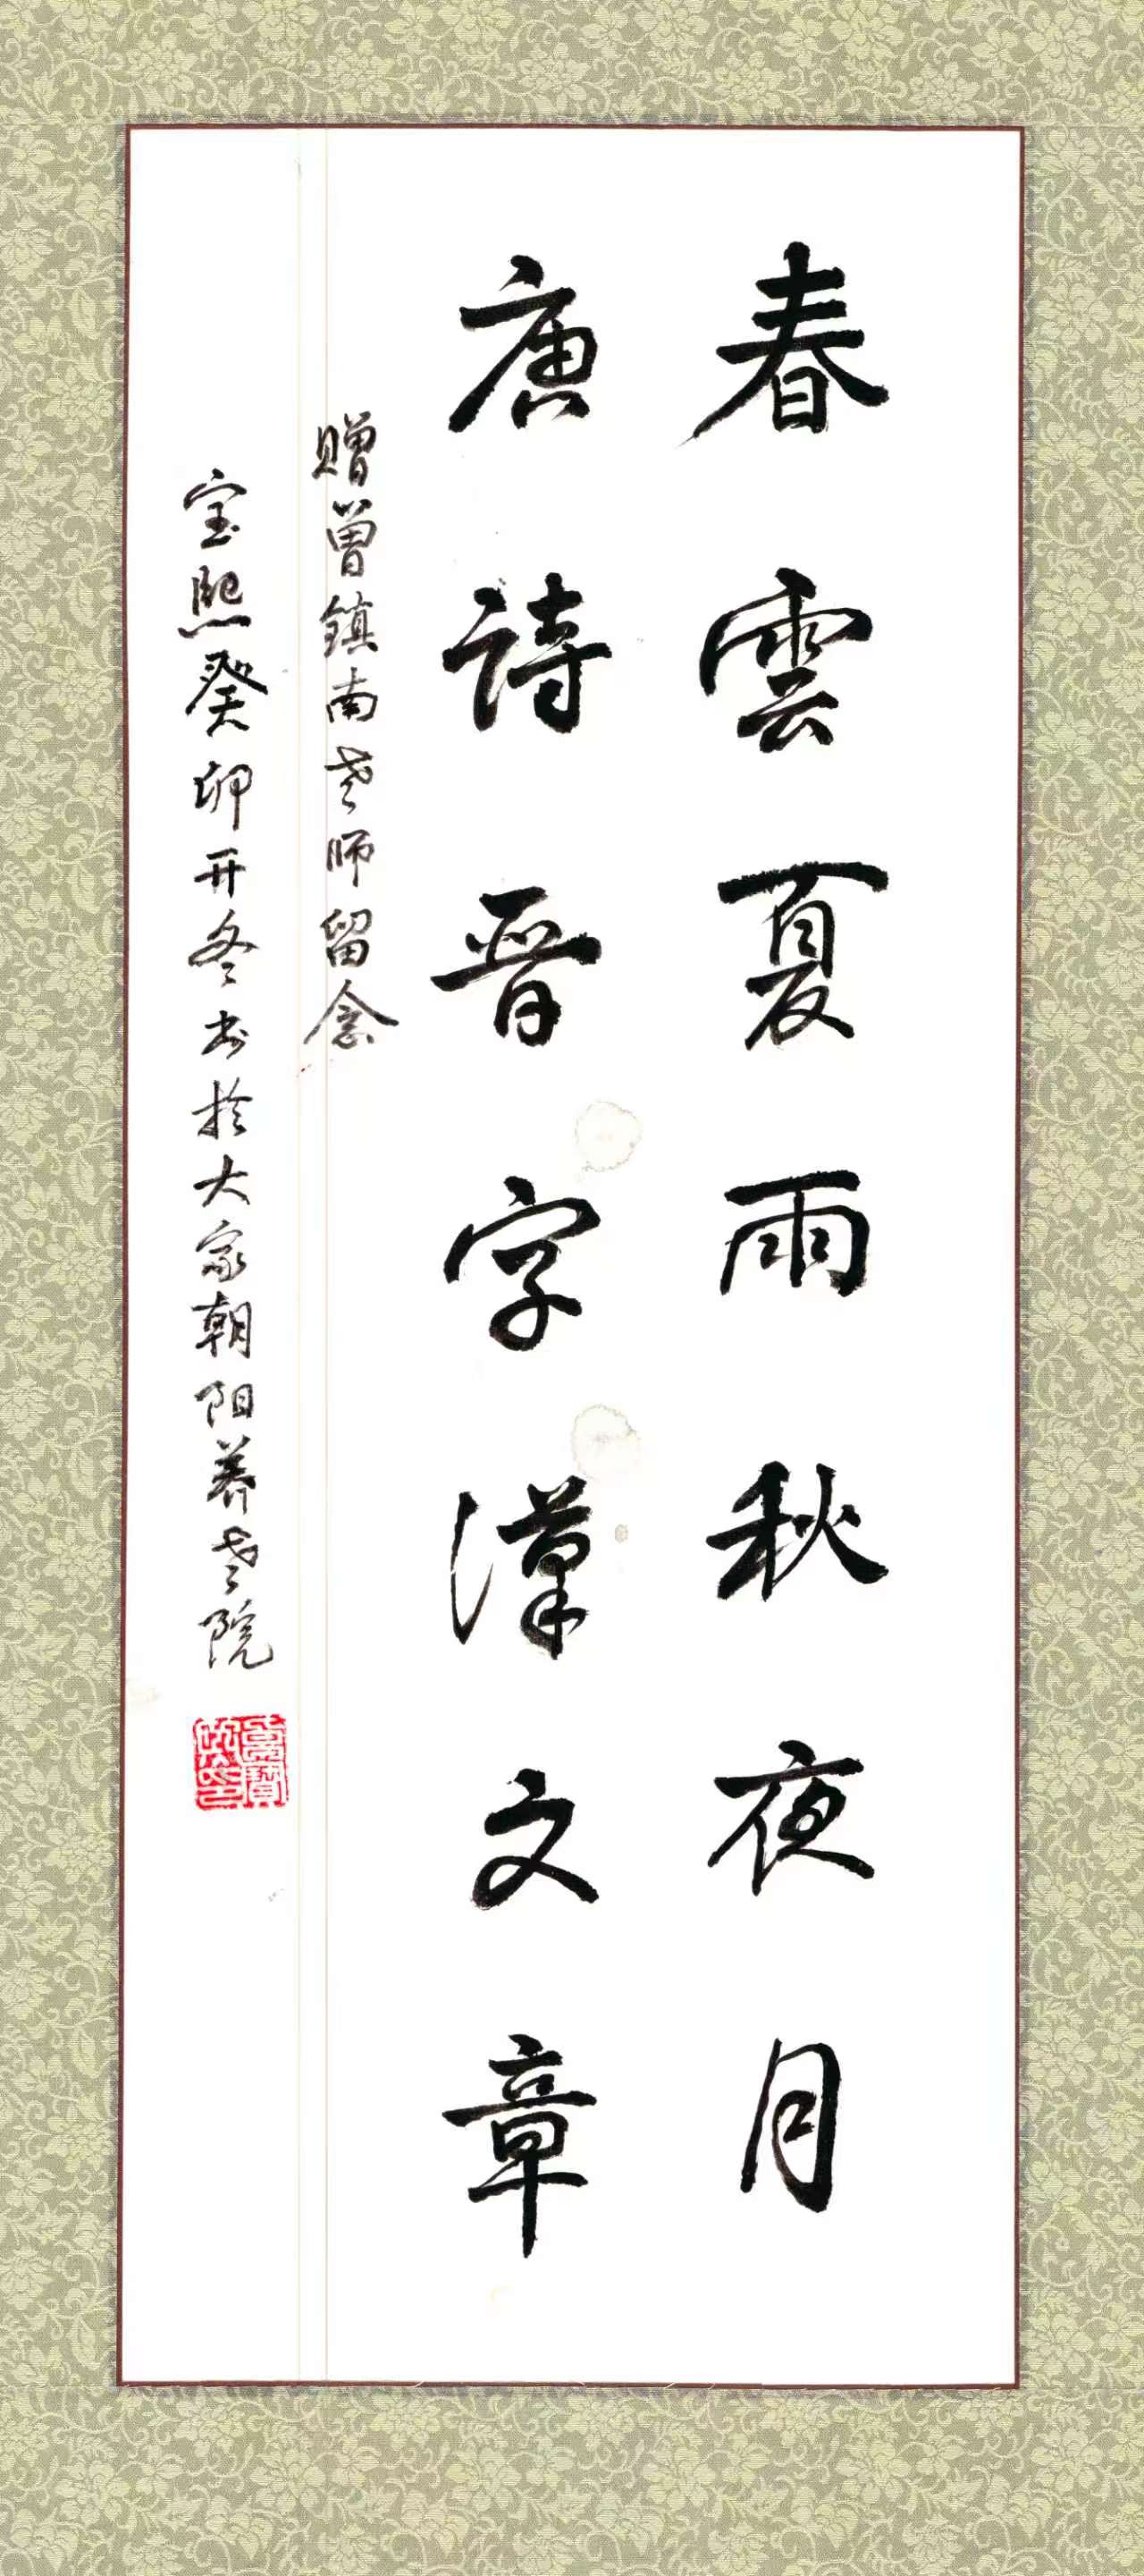 春雲夏雨秋夜月
唐詩晉字漢文章
贈曾鎮南老师留念
宝熙癸卯开冬书於大家朝阳养老院